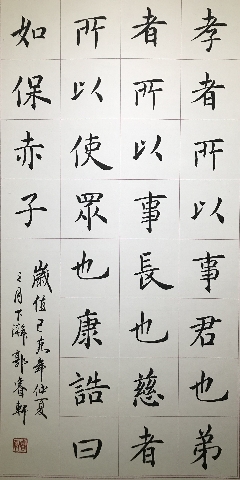 孝者所以事君也弟
者所以事長也慈者
所以使眾也康誥曰
如保赤子
歲值己亥年仲夏
之月下澣郭睿軒